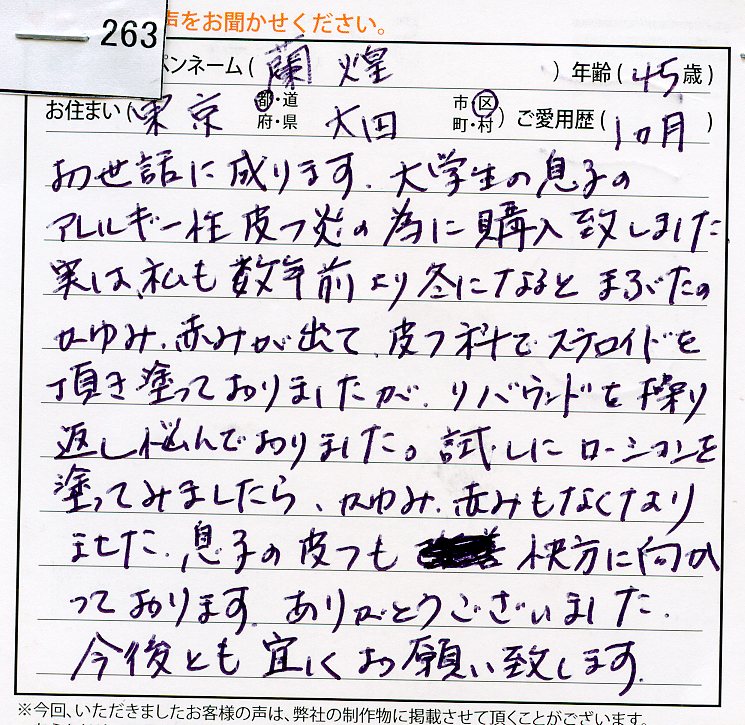 263
声をお聞かせください。
ペンネーム( 蘭 煌 ) 年齢( 45 歳)
お住まい( 東京 都・道 府・県 大田 市・区 町・村 ) ご愛用歴( 1ヶ月 )
お世話に成ります。大学生の息子の
アレルギー性皮フ炎の為に購入致しました
実は、私も数年前より冬になるとまぶたの
かゆみ、赤みが出て、皮フ科でステロイドを
頂き塗っておりましたが、リバウンドを操り
返し悩んでおりました。試しにローションを
塗ってみましたら、かゆみ、赤みもなくなり
ました、息子の皮フも 快方に向か
っております。ありがとうございました。
今後とも宜しくお願い致します。
※今回、いただきましたお客様の声は、弊社の制作物に掲載させて頂くことがございます。